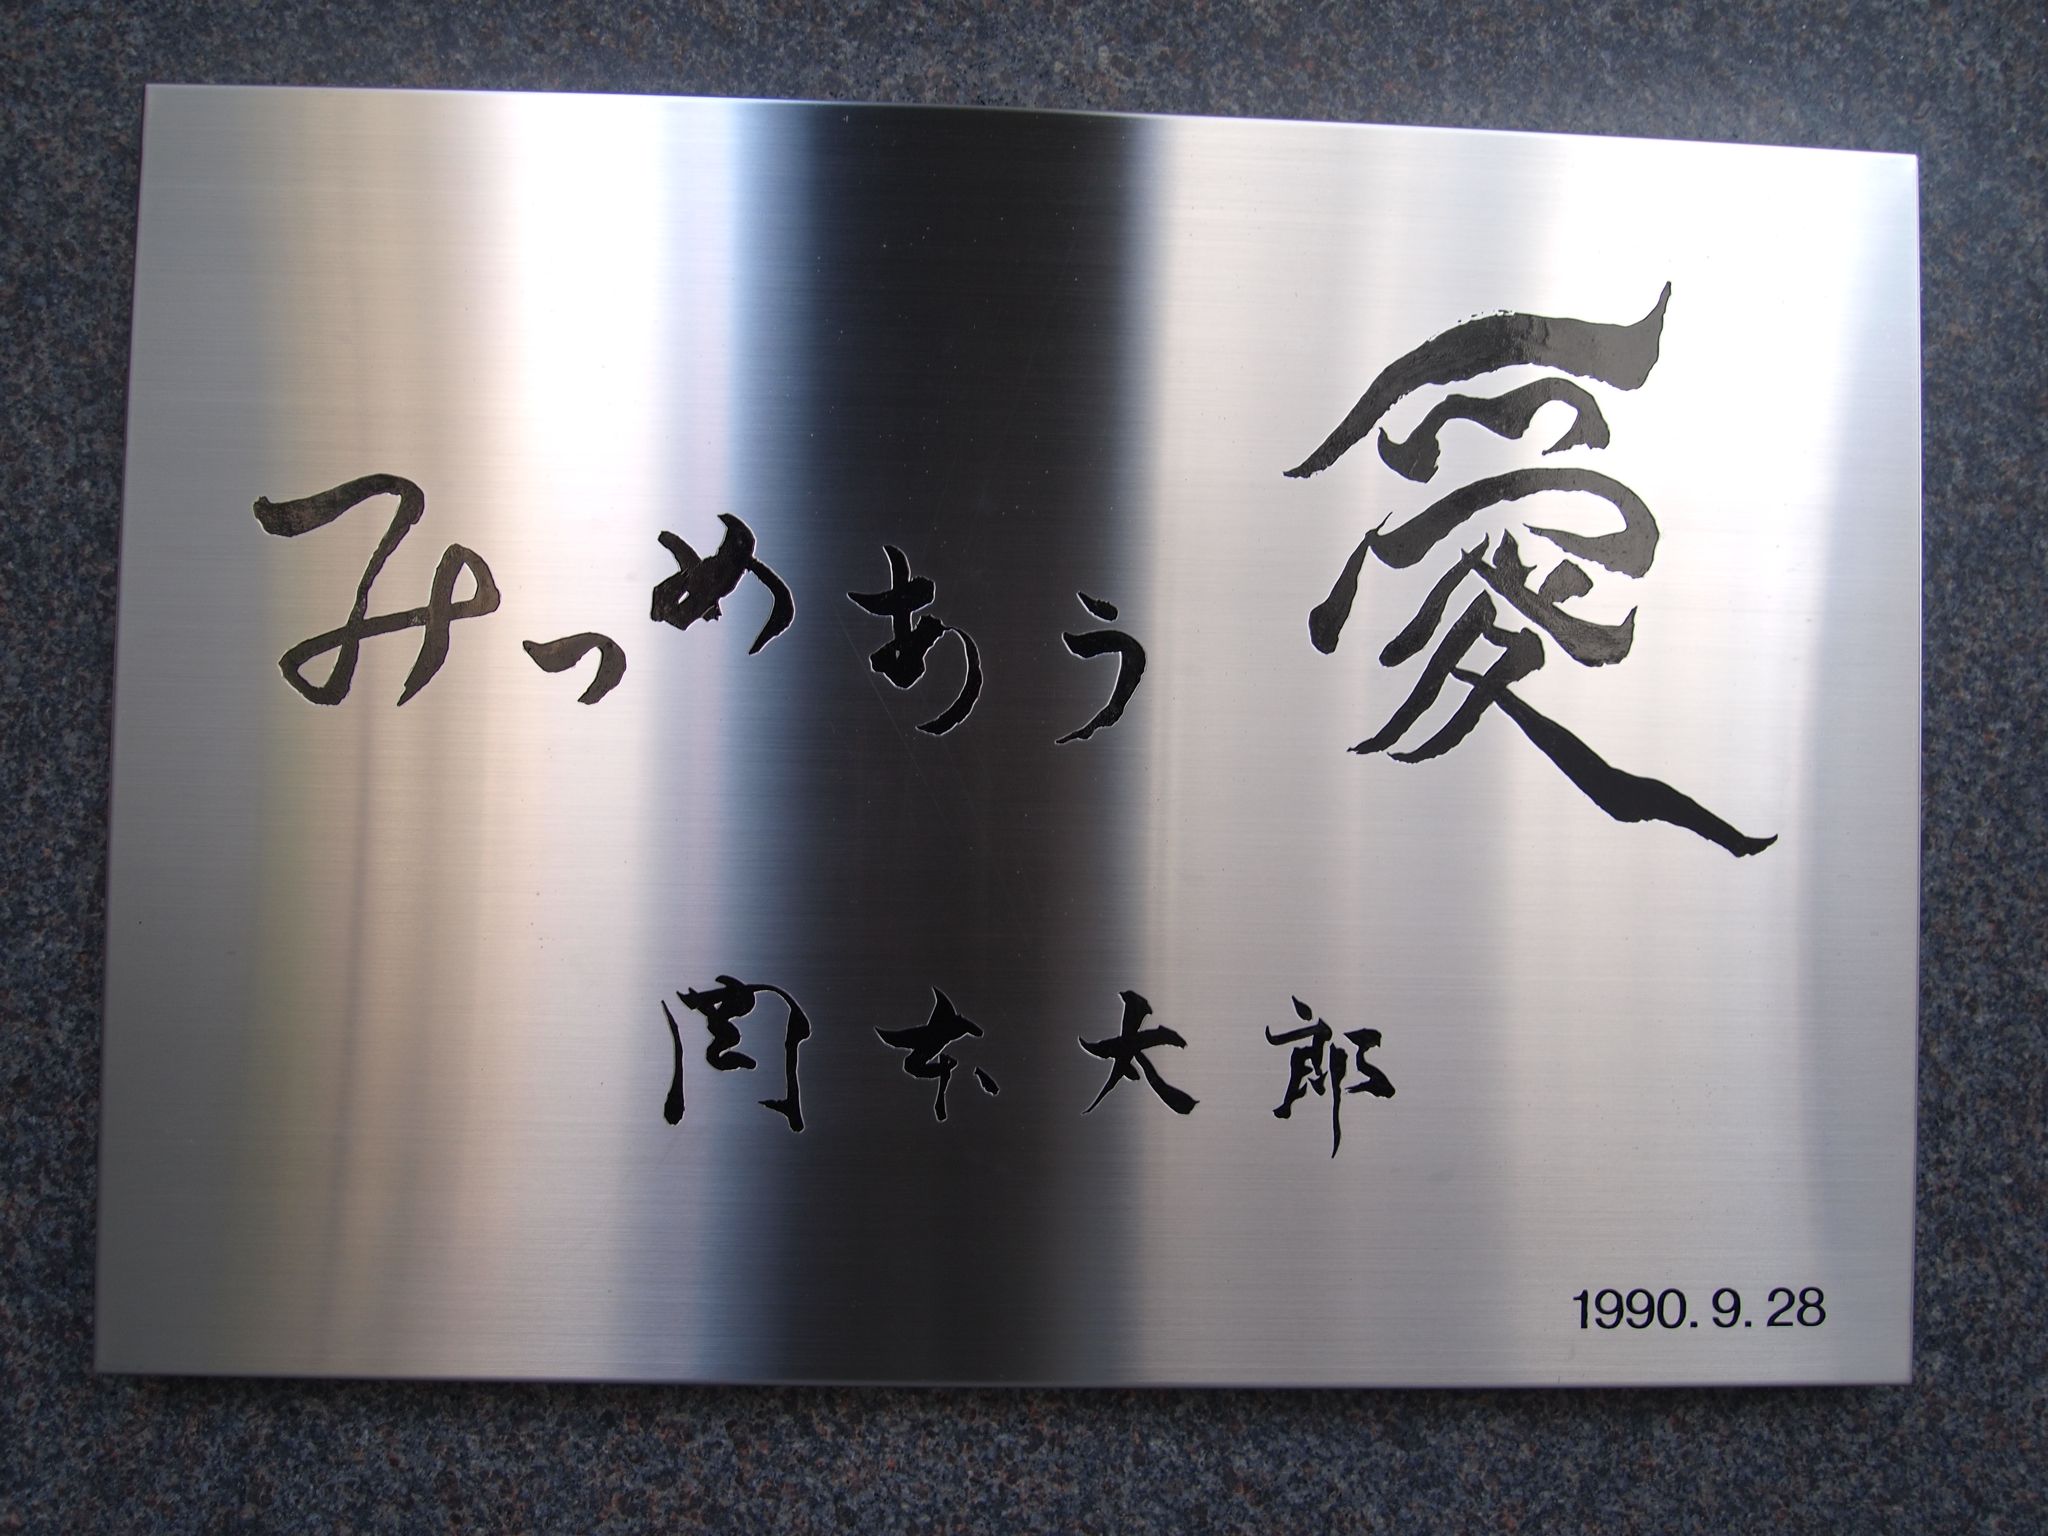 みつめあう愛
岡本太郎
1990.9.28